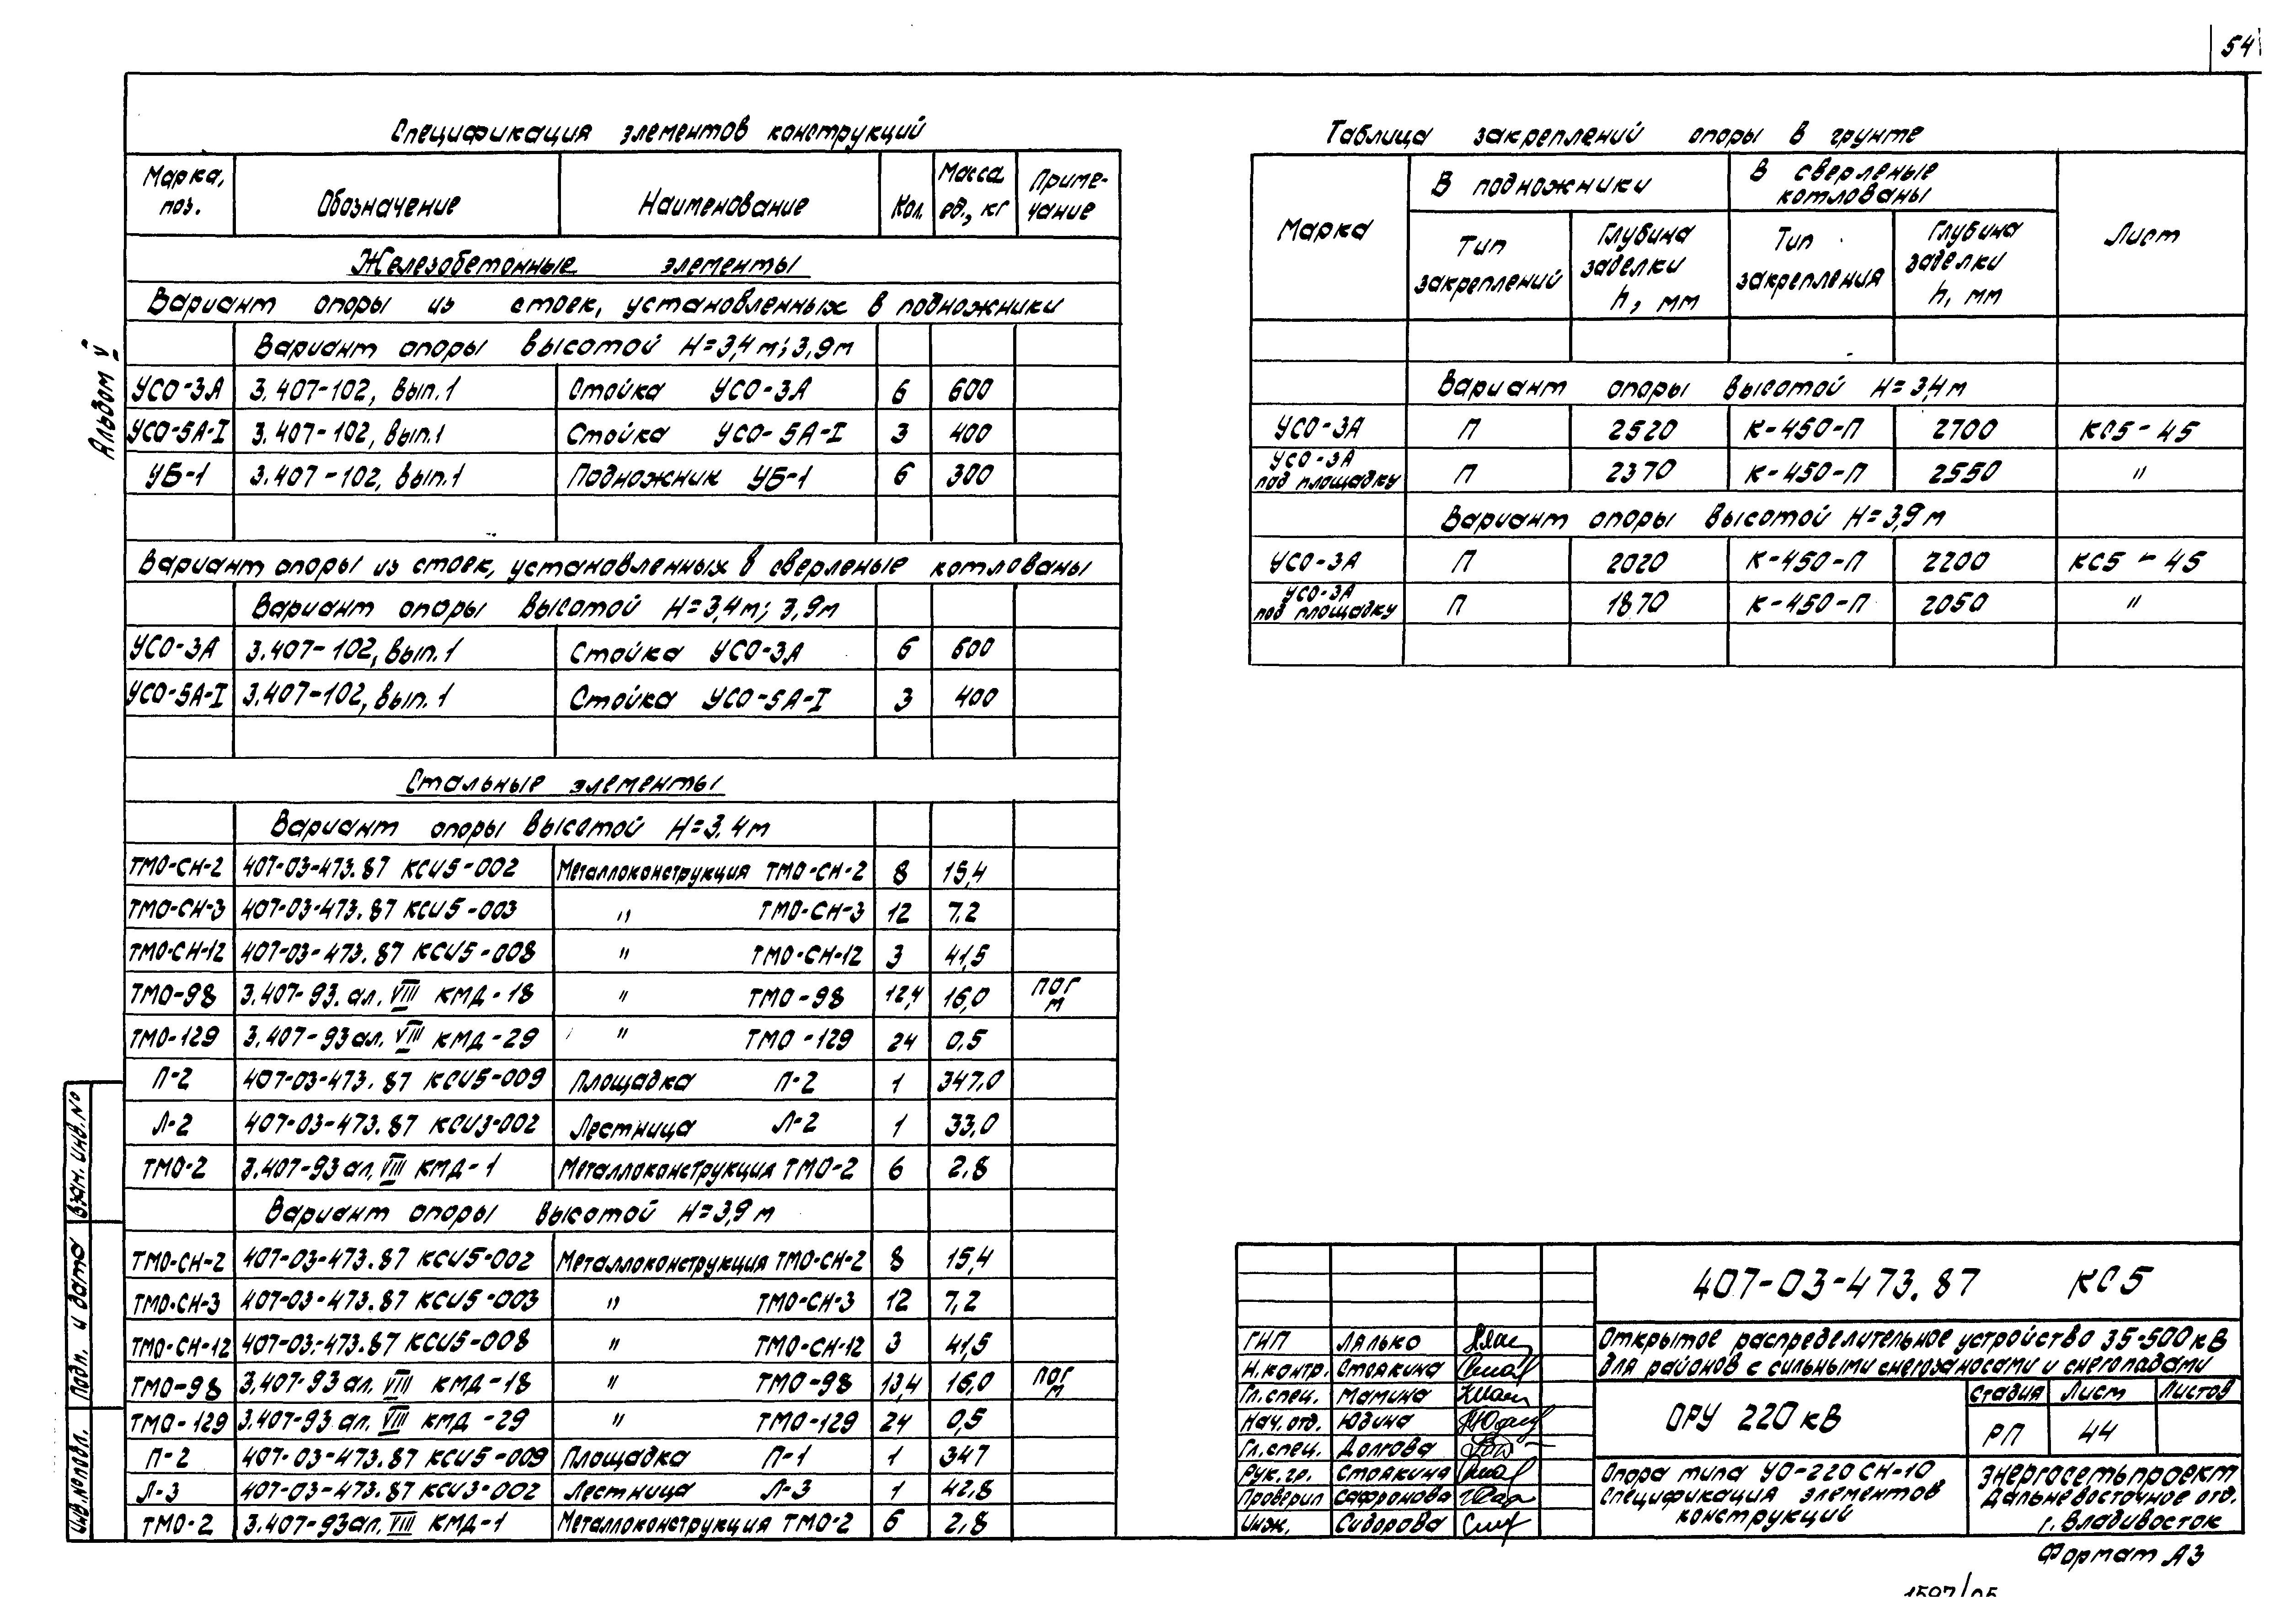 54
Спецификация элементов конструкций
Марка, поз. Обозначение Наименование Кол. Масса ед., кг Приме-чание
Железобетонные элементы
Вариант опоры из стоек, установленных в подножники
Вариант опоры высотой Н=3,4м; 3,9м
УСО-3А 3.407-102, вып.1 Стойка УСО-3А 6 600
УСО-5А-I 3.407-102, вып.1 Стойка УСО-5А-I 3 400
УБ-1 3.407-102, вып.1 Подножник УБ-1 6 300
Вариант опоры из стоек, установленных в сверленые котлованы
Вариант опоры высотой Н=3,4м; 3,9м
УСО-3А 3.407-102, вып.1 Стойка УСО-3А 6 600
УСО-5А-I 3.407-102, вып.1 Стойка УСО-5А-I 3 400
Стальные элементы
Вариант опоры высотой Н=3.4м
ТМО-СН-2 407-03-473.87 КСИ5-002 Металлоконструкция ТМО-СН-2 8 15,4
ТМО-СН-3 407-03-473.87 КСИ5-003 " ТМО-СН-3 12 7,2
ТМО-СН-12 407-03-473.87 КСИ5-008 " ТМО-СН-12 3 41,5
ТМО-98 3.407-93. ал. VIII КМД-18 " ТМО-98 12,4 16,0 пог м
ТМО-129 3.407-93 ал. VIII КМД-29 " ТМО-129 24 0,5
П-2 407-03-473.87 КСИ5-009 Площадка П-2 1 347,0
Л-2 407-03-473.87 КСИ3-002 Лестница Л-2 1 33,0
ТМО-2 3.407-93 ал. VIII КМД-1 Металлоконструкция ТМО-2 6 2,8
Вариант опоры высотой Н=3,9м
ТМО-СН-2 407-03-473.87 КСИ5-002 Металлоконструкция ТМО-СН-2 8 15,4
ТМО-СН-3 407-03-473.87 КСИ5-003 " ТМО-СН-3 12 7,2
ТМО-СН-12 407-03-473.87 КСИ5-008 " ТМО-СН-12 3 41,5
ТМО-98 3.407-93 ал. VIII КМД-18 " ТМО-98 13,4 16,0 пог м
ТМО-129 3.407-93 ал. VIII КМД-29 " ТМО-129 24 0,5
П-2 407-03-473.87 КСИ5-009 Площадка П-1 1 347
Л-3 407-03-473.87 КСИ3-002 Лестница Л-3 1 42,8
ТМО-2 3.407-93 ал. VIII КМД-1 Металлоконструкция ТМО-2 6 2,8
Альбом V
Взам. инв. №
Подп. и дата
Инв. № подл.
Таблица закреплений опоры в грунте
Марка В подножники В сверленые котлованы Лист
Тип закреплений Глубина заделки h, мм Тип закрепления Глубина заделки h, мм
Вариант опоры высотой Н=3,4м
УСО-3А П 2520 К-450-П 2700 КС5-45
УСО-3А под площадку П 2370 К-450-П 2550 "
Вариант опоры высотой Н=3,9м
УСО-3А П 2020 К-450-П 2200 КС5-45
УСО-3А под площадку П 1870 К-450-П 2050 "
407-03-473.87 КС5
ГИП Лялько
Н.контр. Стоякина
Гл.спец. Мамина
Нач.отд. Юдина
Гл.спец. Долгова
Рук.гр. Стоякина
Проверил Сафронова
Инж. Сидорова
Открытое распределительное устройство 35-500кВ
для районов с сильными снегозаносами и снегопадами
ОРУ 220кВ
Стадия Лист Листов
РП 44
Опора типа УО-220СН-10
Спецификация элементов
конструкций
Энергосетьпроект
Дальневосточное отд.
г. Владивосток
Формат А3